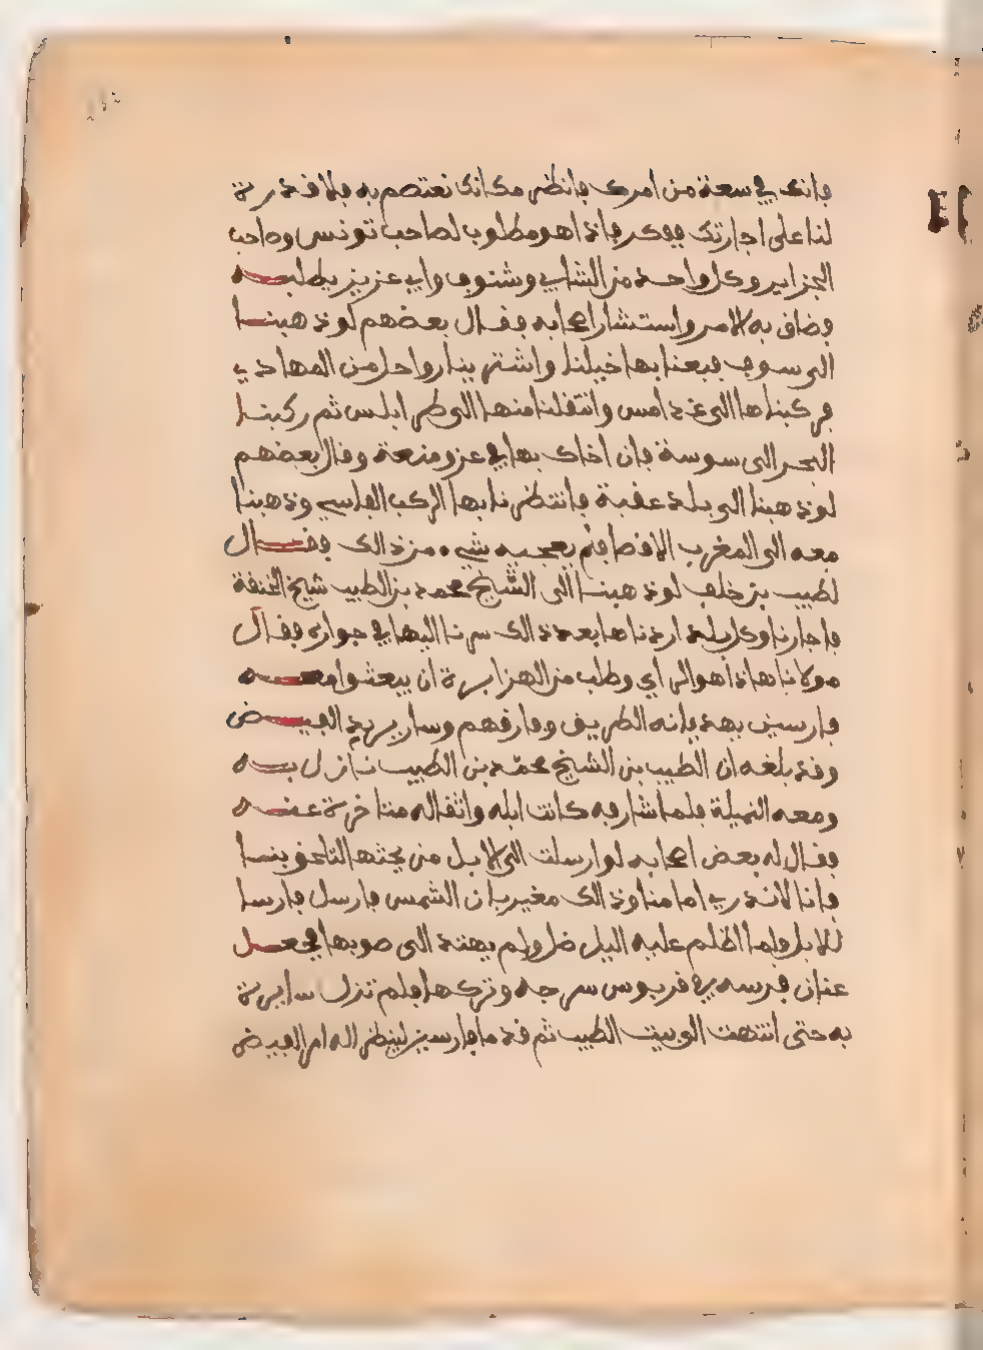 فانك في سعة من امرك فانظر مكانك نعتصم به فلا قدرة
لنا على اجارتك ففكر فاذا هو مطلوب لصاحب تونس وصاحب
الجزاير وكل واحد من الشابي وشنوف وابي عزيز يطلبه
فضاق به الامر واستشار اصحابه فقال بعضهم لو ذهبنا
الى سوف فبعنا بها خيلنا واشترينا رواحل من المهاذي
فركبناها الى غدامس وانتقلنا منها الى طرابلس ثم ركبنا
البحر الى سوسة فان اخاك بها في عز ومنعة وقال بعضهم
لو ذهبنا الى بلد عقبة فانتظرنا بها الركب الفاسي وذهبنا
معه الى المغرب الاقصا فلم يعجبه شيء من ذالك فقال
لطيب بن خلف لو ذهبنا الى الشيخ محمد بن الطيب شيخ الخنقة
فاجارنا وكل بلد اردناها بعد ذالك سرنا اليها في جواره فقال
مولانا هاذا هو الراي وطلب من الهزابرة ان يبعثوا معه
فارسين بهديانه الطريق وفارقهم وسار يريد الفيض
وقد بلغه ان الطيب بن الشيخ محمد بن الطيب نازل به
ومعه النميلة فلما شارفه كانت ابله واثقاله متاخرة عنه
فقال له بعض اصحابه لو ارسلت الى الابل من يحثها لتلحق بنا
فانا لا ندري ما امامنا وذالك مغيربان الشمس فارسل فارسا
للابل ولما اظلم عليه اليل ضل ولم يهتد الى صوبها فجعل
عنان فرسه في قربوس سرجه وتركها فلم تزل سايرة
به حتى انتهت الى بيت الطيب ثم قدما فارسين لينظر اله امر الفيض